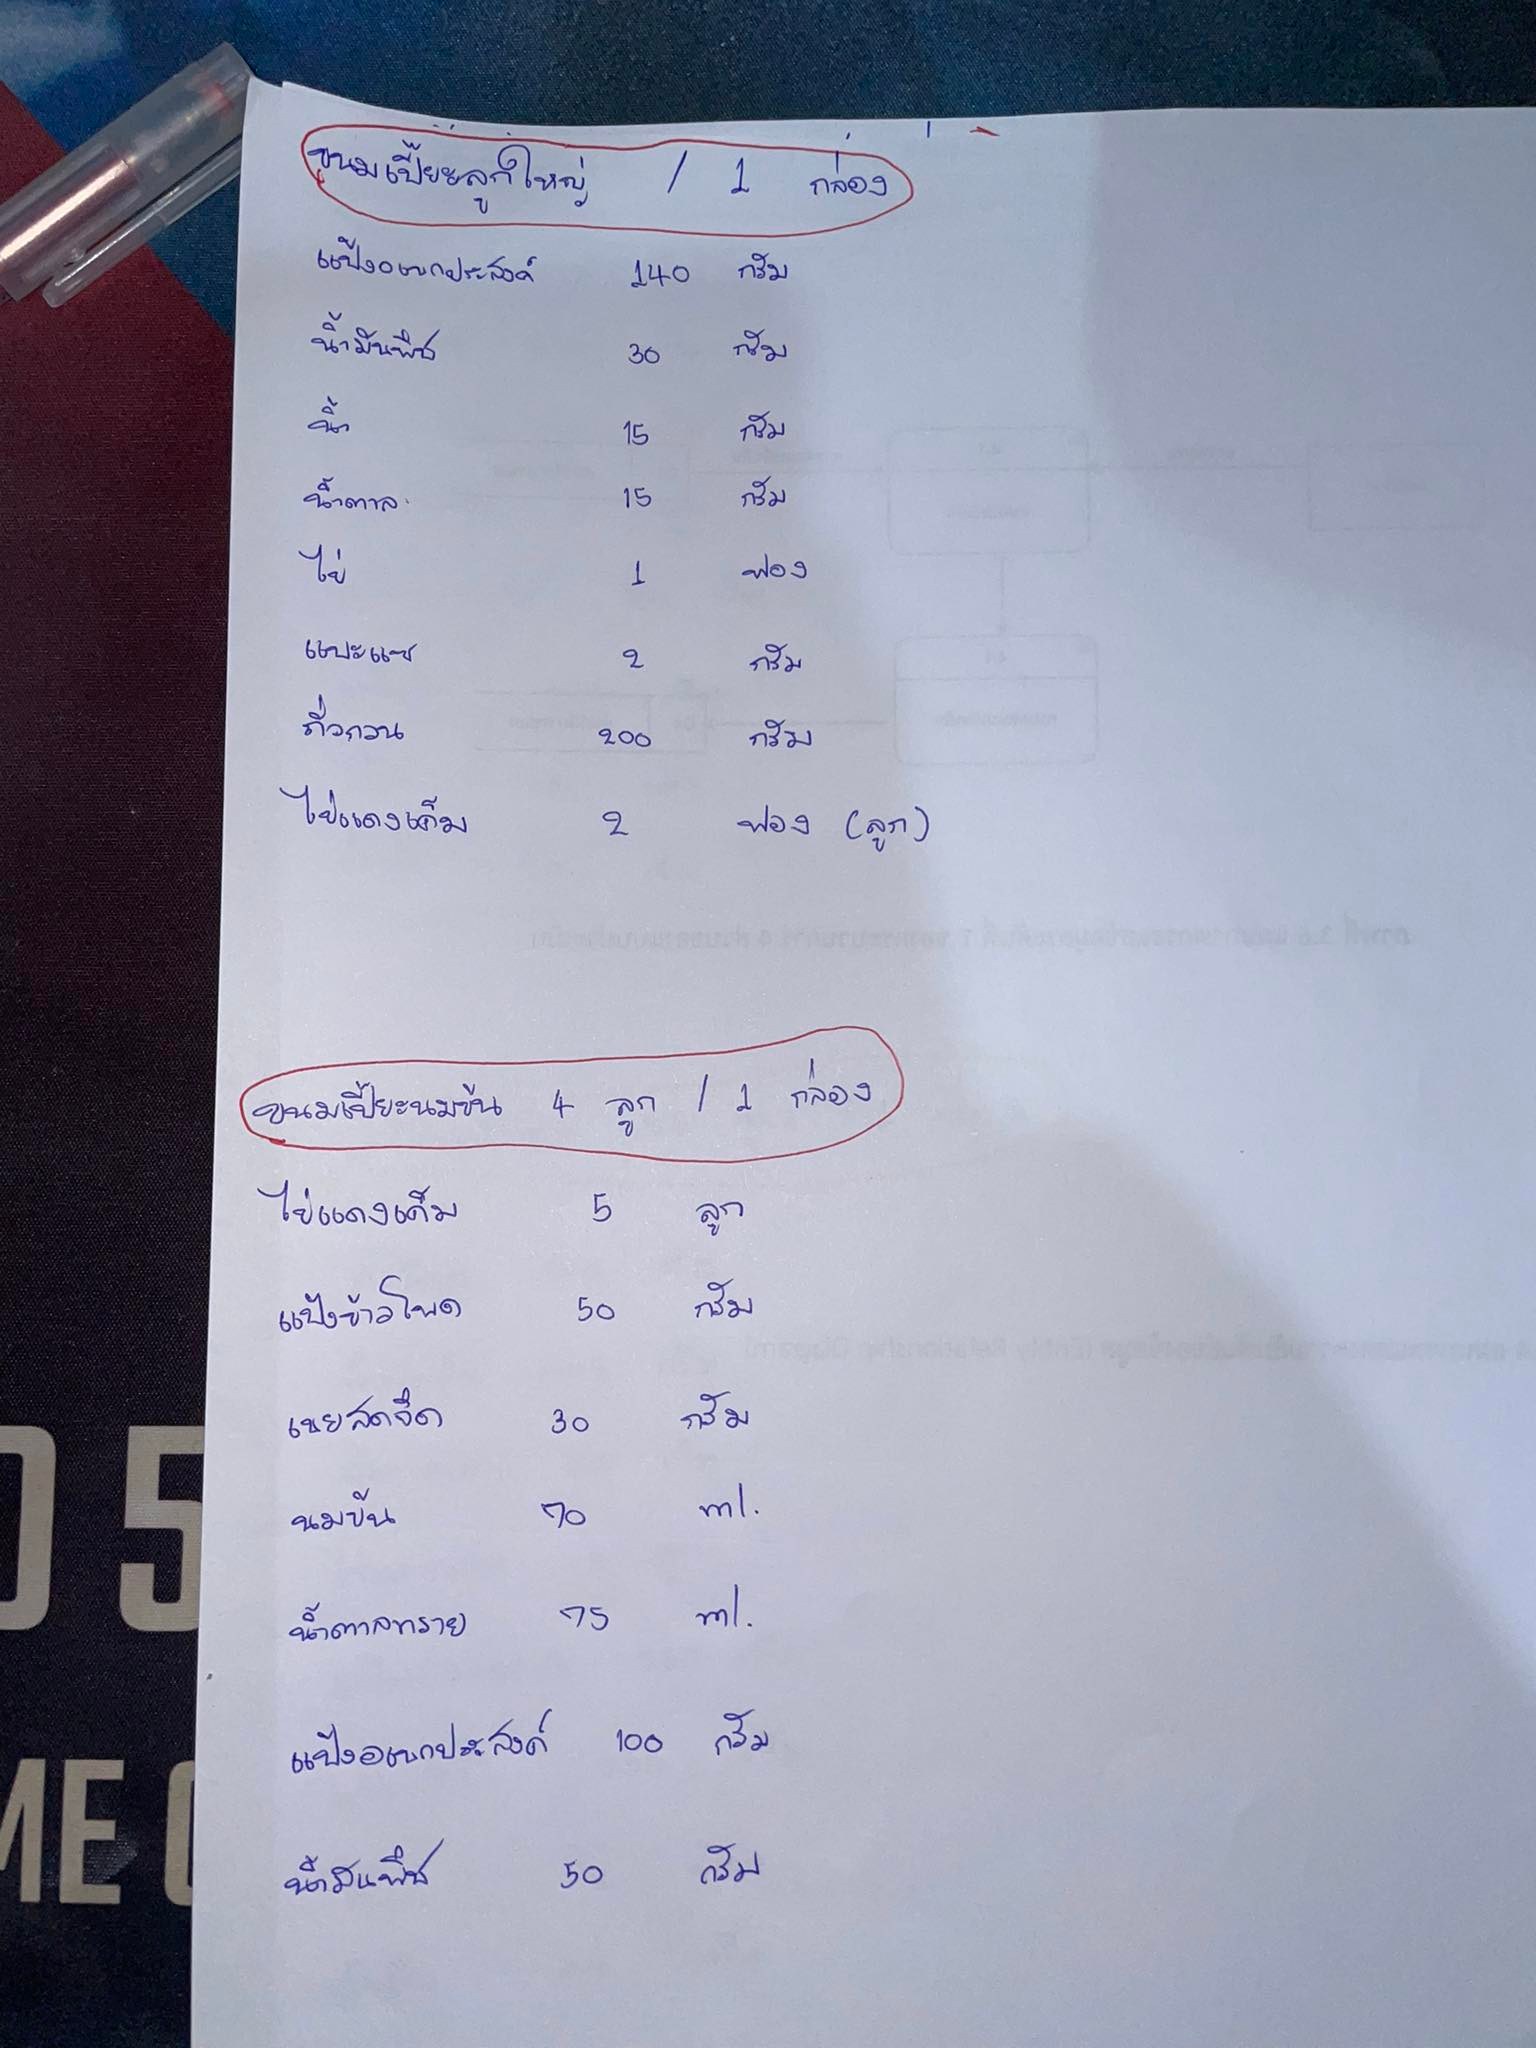 ขนมเปี๊ยะลูกใหญ่ / 1 กล่อง
แป้งอเนกประสงค์ 140 กรัม
น้ำมันพืช 30 กรัม
น้ำ 15 กรัม
น้ำตาล 15 กรัม
ไข่ 1 ฟอง
แบะแซ 2 กรัม
ถั่วกวน 200 กรัม
ไข่แดงเค็ม 2 ฟอง (ลูก)
ขนมเปี๊ยะนมข้น 4 ลูก / 1 กล่อง
ไข่แดงเค็ม 5 ลูก
แป้งข้าวโพด 50 กรัม
เนยสดจืด 30 กรัม
นมข้น 70 ml.
น้ำตาลทราย 75 ml.
แป้งอเนกประสงค์ 100 กรัม
น้ำมันพืช 50 กรัม